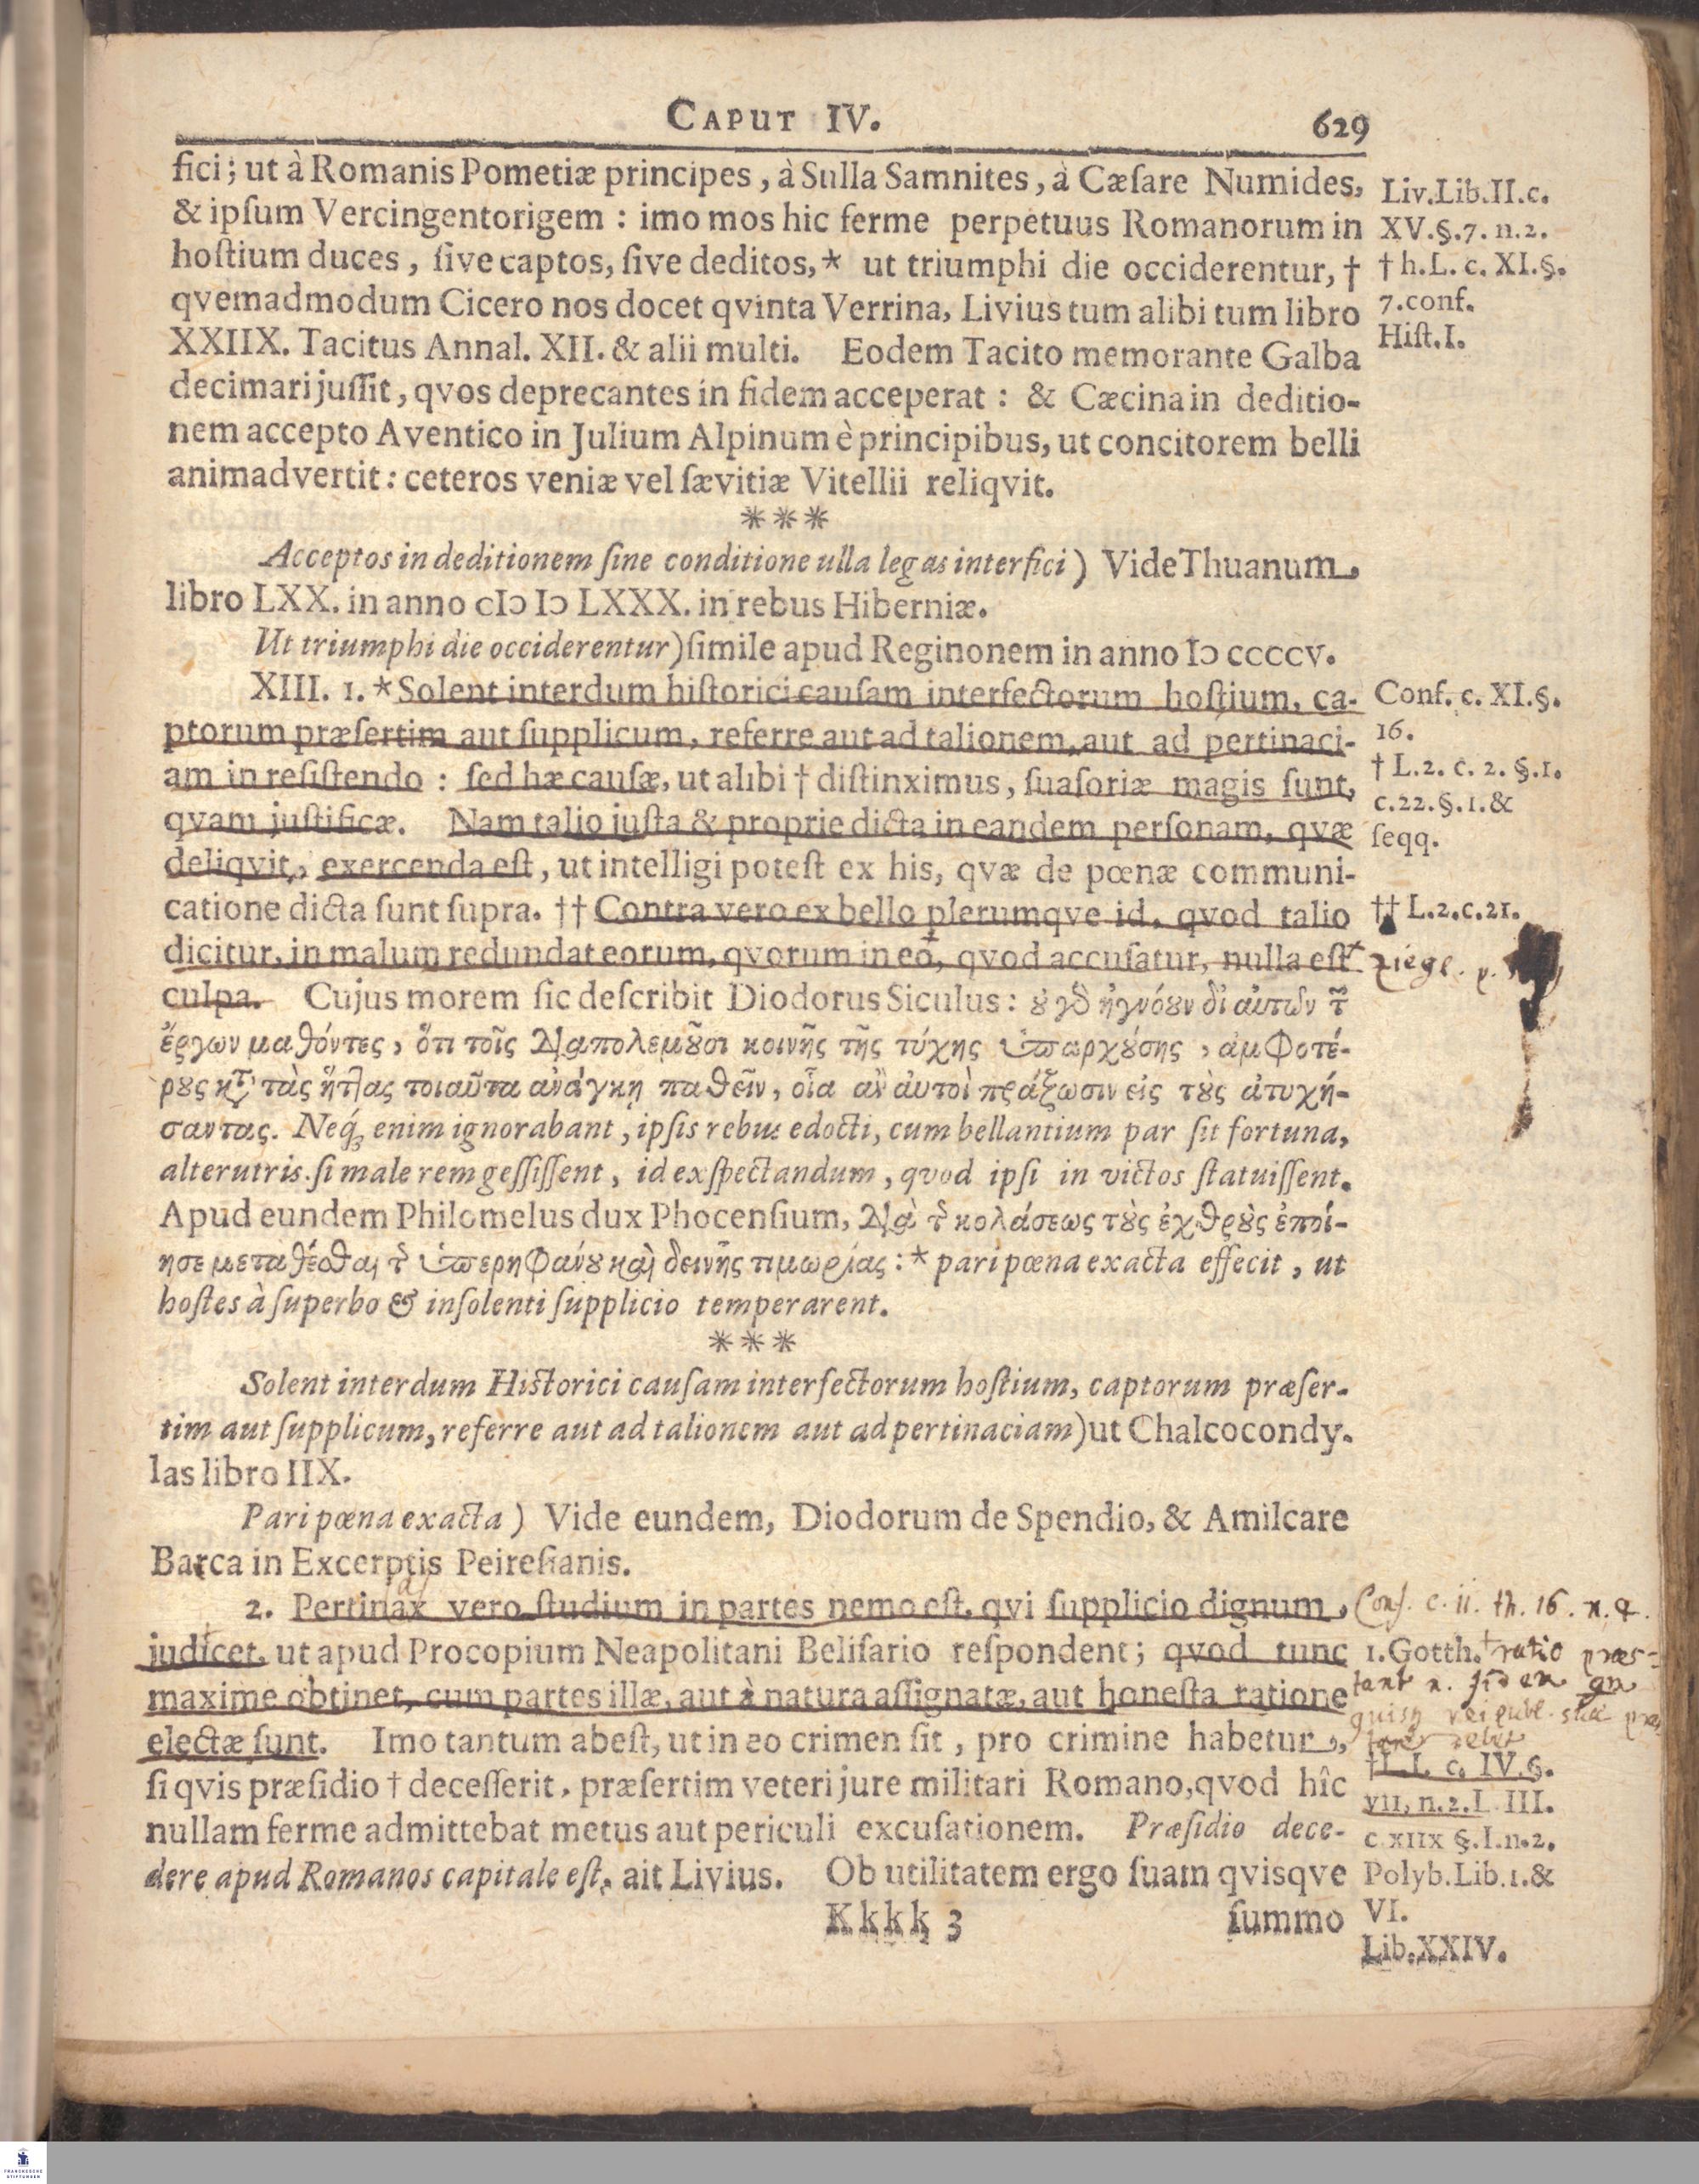 CAPUT IV. 629
fici; ut à Romanis Pometiæ principes, à Sulla Samnites, à Cæſare Numides,
& ipſum Vercingentorigem : imo mos hic ferme perpetuus Romanorum in
hoſtium duces, ſive captos, ſive deditos,* ut triumphi die occiderentur, †
qvemadmodum Cicero nos docet qvinta Verrina, Livius tum alibi tum libro
XXIIX. Tacitus Annal. XII. & alii multi. Eodem Tacito memorante Galba
decimari juſſit, qvos deprecantes in fidem acceperat : & Cæcina in deditio-
nem accepto Aventico in Julium Alpinum è principibus, ut concitorem belli
animadvertit: ceteros veniæ vel ſævitiæ Vitellii reliqvit.
Liv.Lib.II.c.
XV.§.7. n.2.
† h.L. c. XI.§.
7.conf.
Hiſt.I.
***
Acceptos in deditionem ſine conditione ulla legas interfici) Vide Thuanum
libro LXX. in anno cIↃ IↃ LXXX. in rebus Hiberniæ.
Ut triumphi die occiderentur) ſimile apud Reginonem in anno IↃ ccccv.
XIII. 1. * Solent interdum hiſtorici cauſam interfectorum hoſtium, ca-
ptorum præſertim aut ſupplicum, referre aut ad talionem, aut ad pertinaci-
am in reſiſtendo : ſed hæ cauſæ, ut alibi † diſtinximus, ſuaſoriæ magis ſunt,
qvam juſtificæ. Nam talio juſta & proprie dicta in eandem perſonam, qvæ
deliqvit, exercenda eſt, ut intelligi poteſt ex his, qvæ de pœnæ communi-
catione dicta ſunt ſupra. †† Contra vero ex bello plerumqve id, qvod talio
dicitur, in malum redundat eorum, qvorum in eo, qvod accuſatur, nulla eſt
culpa. Cujus morem ſic deſcribit Diodorus Siculus: ȣ̓ γδ ἠγνόȣν δι᾽ αυτῶν τ̃
ἔργων μαθόντες, ὅτι τοῖς διαπολεμȣ͂σι κοινῆς τῆς τύχης ὑπαρχȣ́σης, ἀμφοτέ-
ρȣς κτ̣ τὰς ἥττας τοιαῦτα ανάγκη παθεῖν, οἷα ἂν ἀυτοὶ πράξωσιν εἰς τȣ̀ς ἀτυχή-
σαντας. Neq́ꝫ enim ignorabant, ipſis rebus edocti, cum bellantium par ſit fortuna,
alterutris ſi male rem geſſiſſent, id exſpectandum, qvod ipſi in victos ſtatuiſſent.
Apud eundem Philomelus dux Phocenſium, διὰ τ̃ κολάσεως τȣ̀ς ἐχθρȣ̀ς ἐποί-
ησε μεταθέσθαι τ̃ ὑπερηφάνȣ καὶ δεινῆς τιμωρίας: * pari pœna exacta effecit, ut
hoſtes à ſuperbo & inſolenti ſupplicio temperarent.
Conf. c. XI.§.
16.
† L.2. c. 2. §.1.
c.22.§.1.&
ſeqq.
†† L.2.c.21.
Ziegl. p.
***
Solent interdum Hiſtorici cauſam interfectorum hoſtium, captorum præſer-
tim aut ſupplicum, referre aut ad talionem aut ad pertinaciam) ut Chalcocondy-
las libro IIX.
Pari pœna exacta) Vide eundem, Diodorum de Spendio, & Amilcare
Barca in Excerptis Peireſianis.
2. Pertinax vero ſtudium in partes nemo eſt, qvi ſupplicio dignum
judicet, ut apud Procopium Neapolitani Beliſario reſpondent; qvod tunc
maxime obtinet, cum partes illæ, aut à natura aſſignatæ, aut honeſta ratione
electæ ſunt. Imo tantum abeſt, ut in eo crimen ſit, pro crimine habetur,
ſi qvis præſidio † deceſſerit, præſertim veteri jure militari Romano, qvod hîc
nullam ferme admittebat metus aut periculi excuſationem. Præſidio dece-
dere apud Romanos capitale eſt, ait Livius. Ob utilitatem ergo ſuam qvisqve
Conf. c. 11. th. 16. n. 2.
1.Gotth. † ratio præs-
tant n. fidem
† L.I. c. IV.§.
VII, n.2.L III.
c XIIX §.I.n.2.
Polyb.Lib.1.&
VI.
Lib.XXIV.
Kkkk 3 ſummo
FRANCKESCHE
STIFTUNGEN